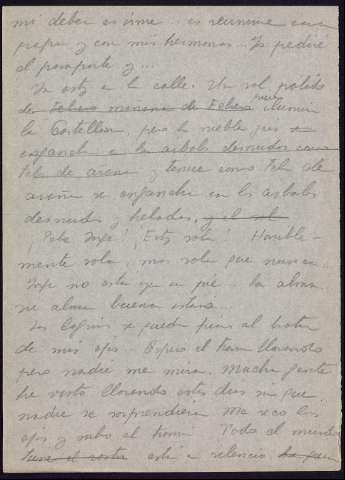 mi deber es irme... es reunirme con
papa y con mis hermanos... Yo pediré
el pasaporte y...
Ya estoy en la calle. Un sol palido
de febrero ilumina
la Castellana, pero la niebla que se
engancha en los arboles desnudos como
tela de araña y tenue como tela de
araña se engancha en los arboles
desnudos y helados,
¡Pobre Jorge! ¡Estoy sola! Horrible-
mente sola, mas sola que nunca.
Jorge no está ya en pie... La alma
mi alma buena
Las lagrimas se quedan frias al brotar
de mis ojos. Espero el tranvia llorando
pero nadie me mira. Mucha gente
he visto llorando estos dias sin que
nadie se sorprendiera. Me seco los
ojos y subo al tranvia. Todo el mundo
tiene el rostro está en silencio